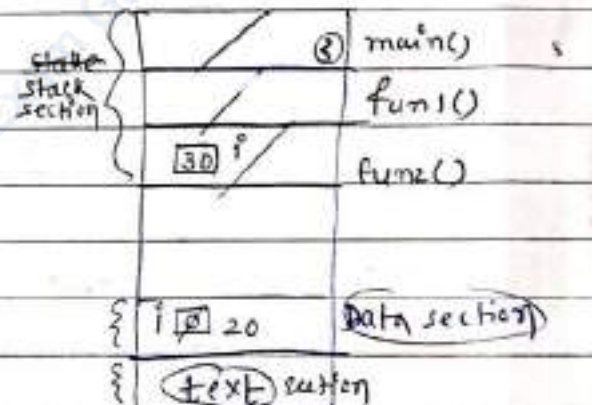 ② main()
stack
section
fun1()
30 i
fun2()
i 0 20 Data section
text section